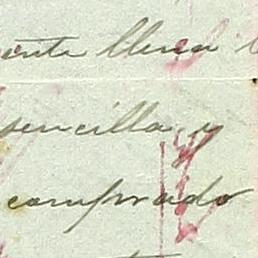 ente lleva
sencilla y
comprado